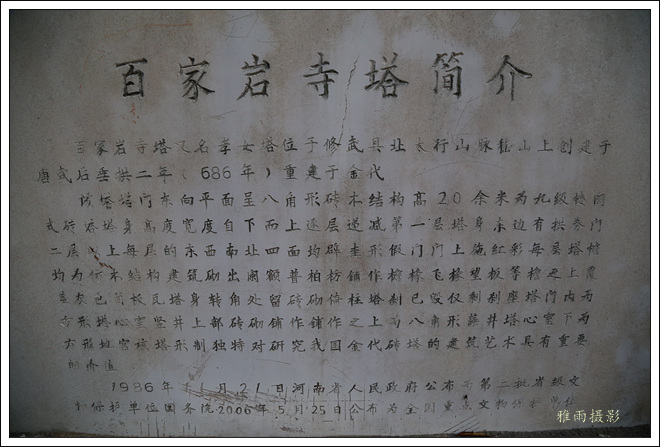 百家岩寺塔简介
百家岩寺塔又名孝女塔位于修武县北太行山脉 山上创建于
唐武后垂拱二年（686年）重建于金代
该塔塔门东向平面呈八角形砖木结构高20余米为九级 
式砖塔塔身高度宽度自下而上逐层递减第一层塔身东边有拱券门
二层以上每层的东西南北四面均辟圭形假门门上施红彩每层塔檐
均为仿木结构建筑砌出阑额普柏枋铺作 椽飞椽 板等檐之上覆
 灰色筒板瓦塔身转角处留砖砌倚柱塔刹已毁仅剩刹座塔门内两
方形塔心室竖井上部砖砌铺作铺作之上为八角形藻井塔心室下两
方形地宫该塔形制独特对研究我国金代砖塔的建筑艺术具有重要
的价值
1986年11月21日河南省人民政府公布为第二批省级文
物保护单位国务院2006年5月25日公布为全国重点文物保护单位
雅雨摄影